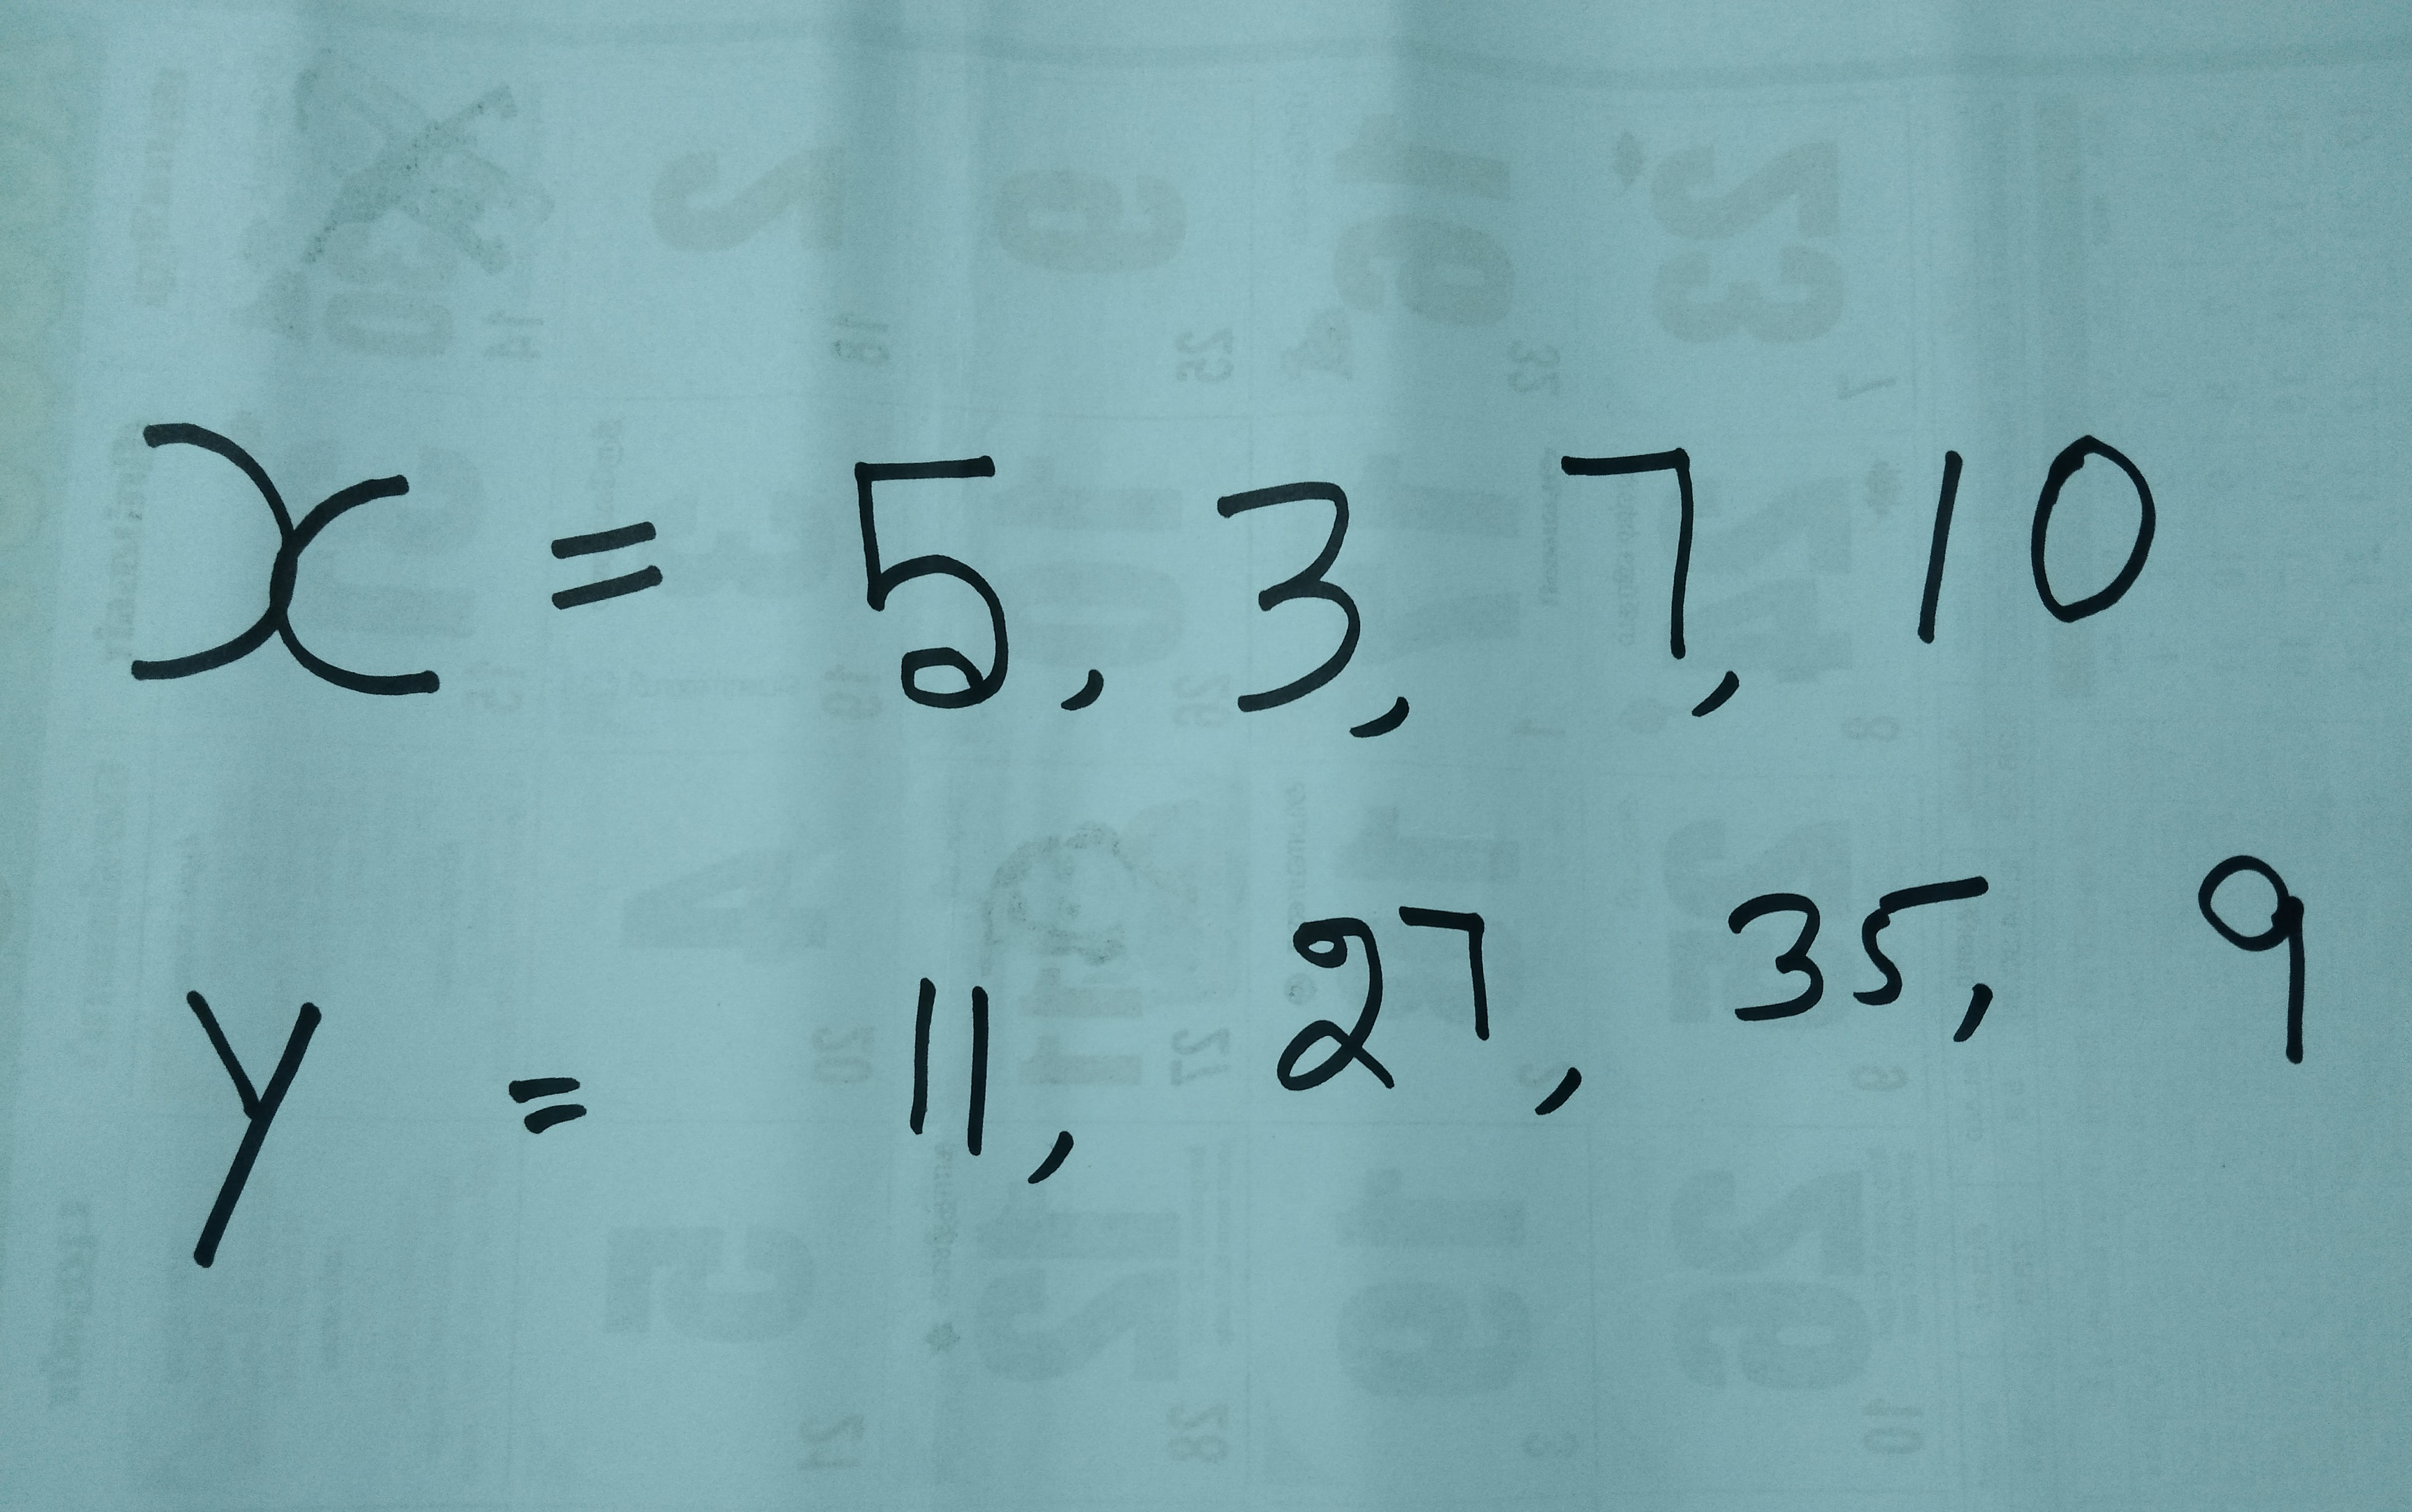 x = 5, 3, 7, 10
y = 11, 27, 35, 9